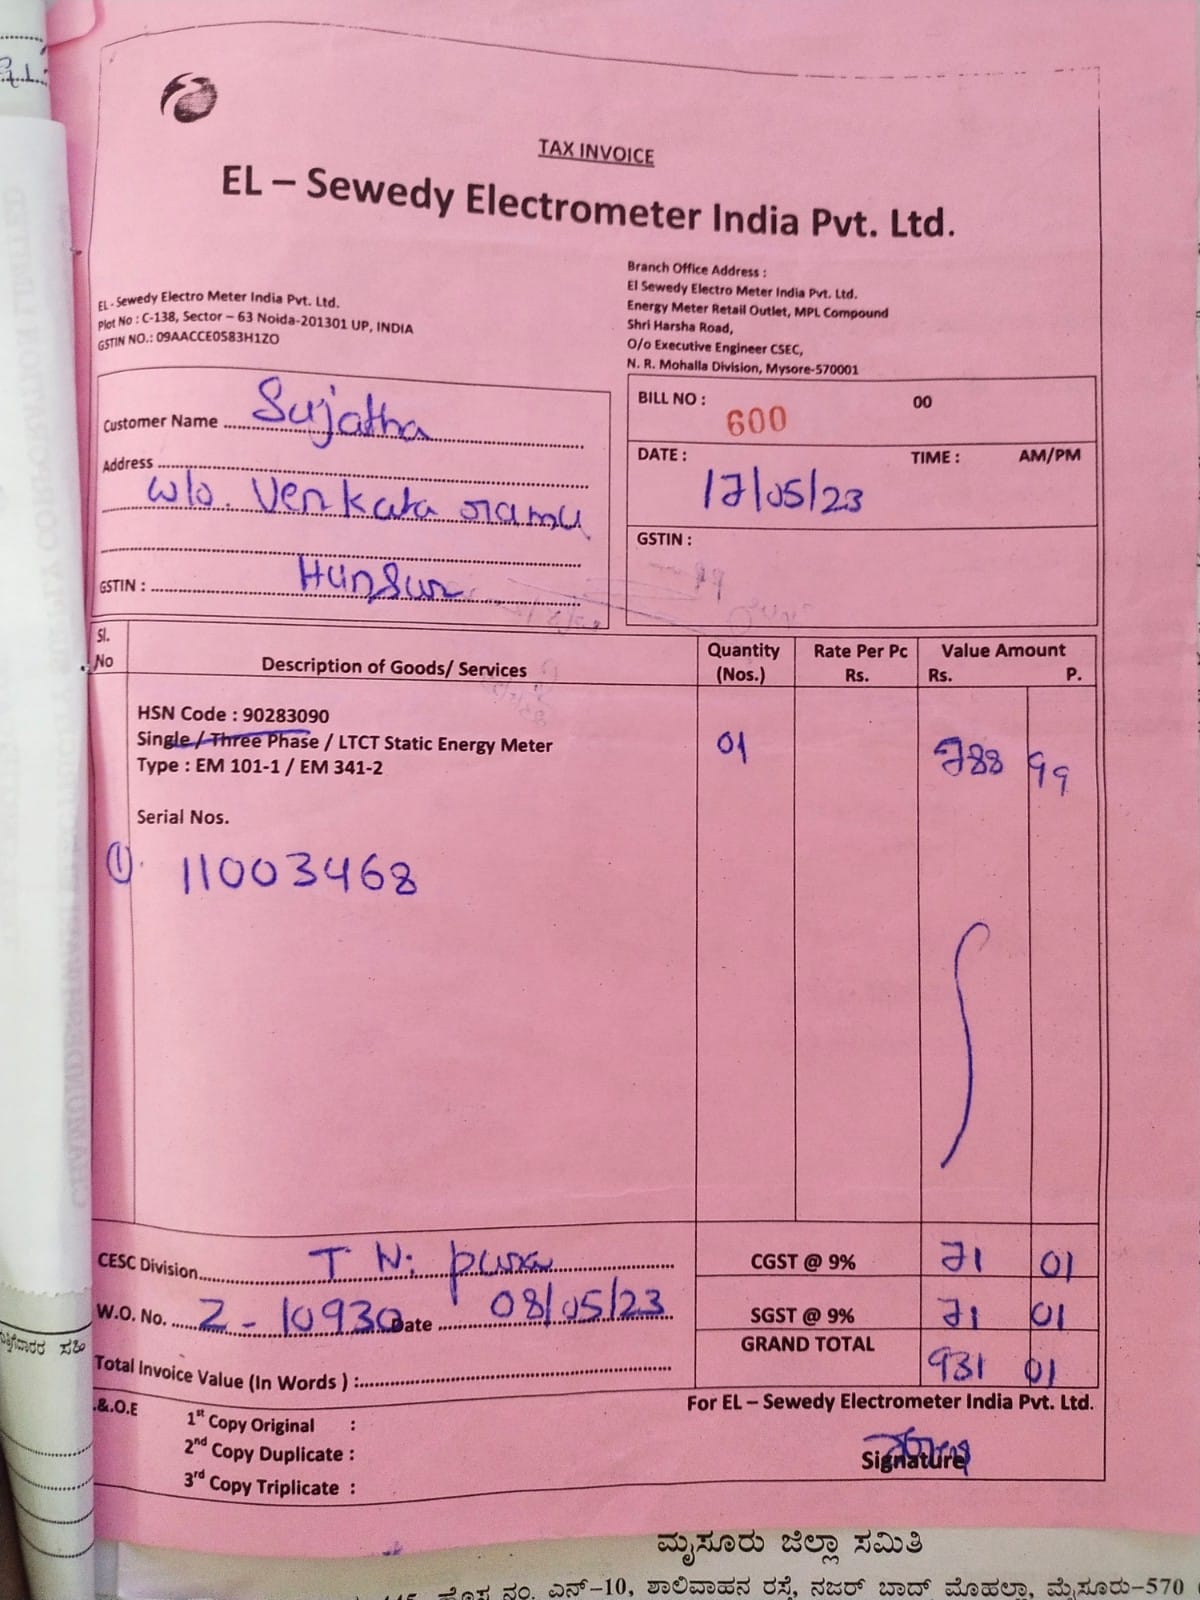 TAX INVOICE
EL – Sewedy Electrometer India Pvt. Ltd.
EL - Sewedy Electro Meter India Pvt. Ltd.
Plot No : C-138, Sector – 63 Noida-201301 UP, INDIA
GSTIN NO.: 09AACCE0583H1ZO
Branch Office Address :
El Sewedy Electro Meter India Pvt. Ltd.
Energy Meter Retail Outlet, MPL Compound
Shri Harsha Road,
O/o Executive Engineer CSEC,
N. R. Mohalla Division, Mysore-570001
Customer Name Sujatha
Address
w/o. Venkata ramu
GSTIN : Hunsur
BILL NO : 600 00
DATE : TIME : AM/PM
17/05/23
GSTIN :
Sl. No Description of Goods/ Services Quantity (Nos.) Rate Per Pc Rs. Value Amount Rs. P.
HSN Code : 90283090
Single / Three Phase / LTCT Static Energy Meter 01 788 99
Type : EM 101-1 / EM 341-2
Serial Nos.
① 11003468
CESC Division T N: pura CGST @ 9% 71 01
W.O. No. Z - 10930 Date 08/05/23 SGST @ 9% 71 01
Total Invoice Value (In Words ) : GRAND TOTAL 931 01
.&.O.E
1st Copy Original :
2nd Copy Duplicate :
3rd Copy Triplicate :
For EL – Sewedy Electrometer India Pvt. Ltd.
Signature
ಮೈಸೂರು ಜಿಲ್ಲಾ ಸಮಿತಿ
ಹೊಸ ನಂ. ಎನ್-10, ಶಾಲಿವಾಹನ ರಸ್ತೆ, ನಜರ್ ಬಾದ್ ಮೊಹಲ್ಲಾ, ಮೈಸೂರು-570